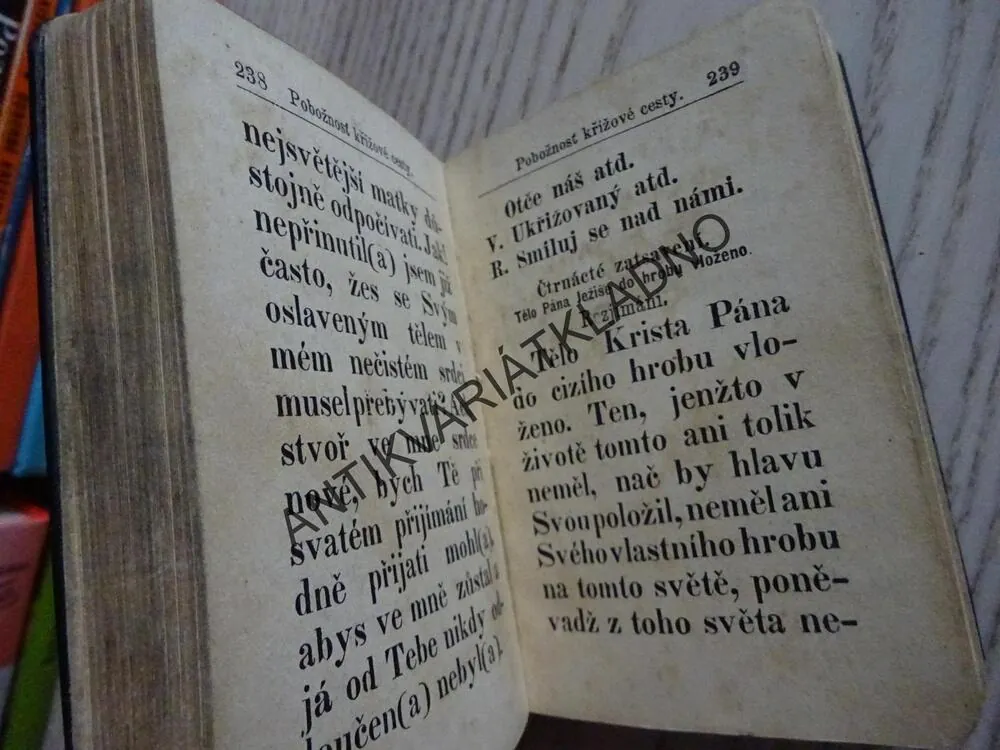 238
Pobožnosť křížové cesty.
nejsvětější matky dů-
stojně odpočívati. Jak!
nepřinutil(a) jsem již
často, žes se Svým
oslaveným tělem v
mém nečistém srdci
musel přebývati?
stvoř ve mně srdce
nové, bych Tě při
svatém přijímání ho-
dně přijati mohl(a),
abys ve mně zůstal a
já od Tebe nikdy od-
loučen(a) nebyl(a).
Pobožnosť křížové cesty.
239
Otče náš atd.
V. Ukřižovaný atd.
R. Smiluj se nad námi.
Čtrnácté zastavení.
Tělo Pána Ježíše do hrobu vloženo.
Rozjímání.
Tělo Krista Pána
do cizího hrobu vlo-
ženo. Ten, jenžto v
životě tomto ani tolik
neměl, nač by hlavu
Svou položil, neměl ani
Svého vlastního hrobu
na tomto světě, poně-
vadž z toho světa ne-
ANTIKVARIÁTKLADNO